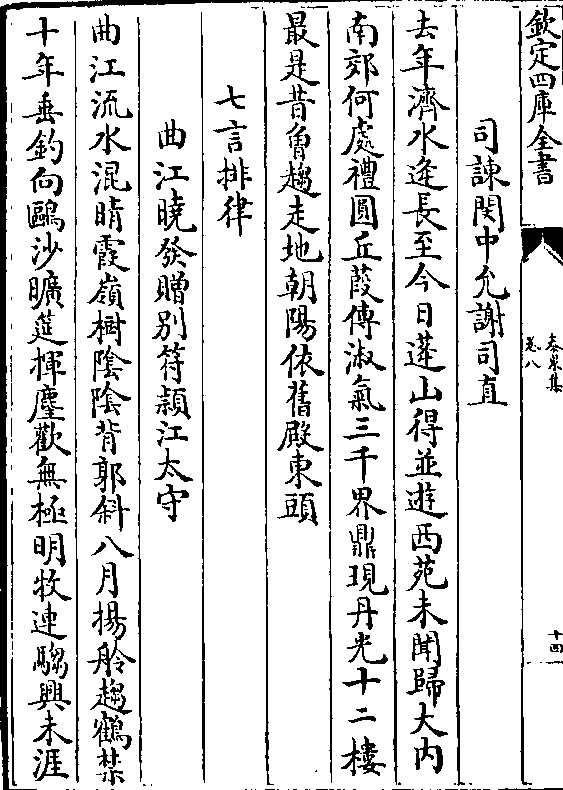 欽定四庫全書
泰泉集
卷八
十四
司諫閔中允謝司直
去年濟水逢長至今日蓬山得並遊西苑未聞歸大内
南郊何處禮圓丘葭傳淑氣三千界鼎現丹光十二樓
最是昔曾趨走地朝陽依舊殿東頭
七言排律
曲江曉發贈别符頴江太守
曲江流水混晴霞嶺樹陰陰背郭斜八月揚舲趨鶴禁
十年垂釣向鷗沙曠筵揮麈歡無極明牧連騶興未涯